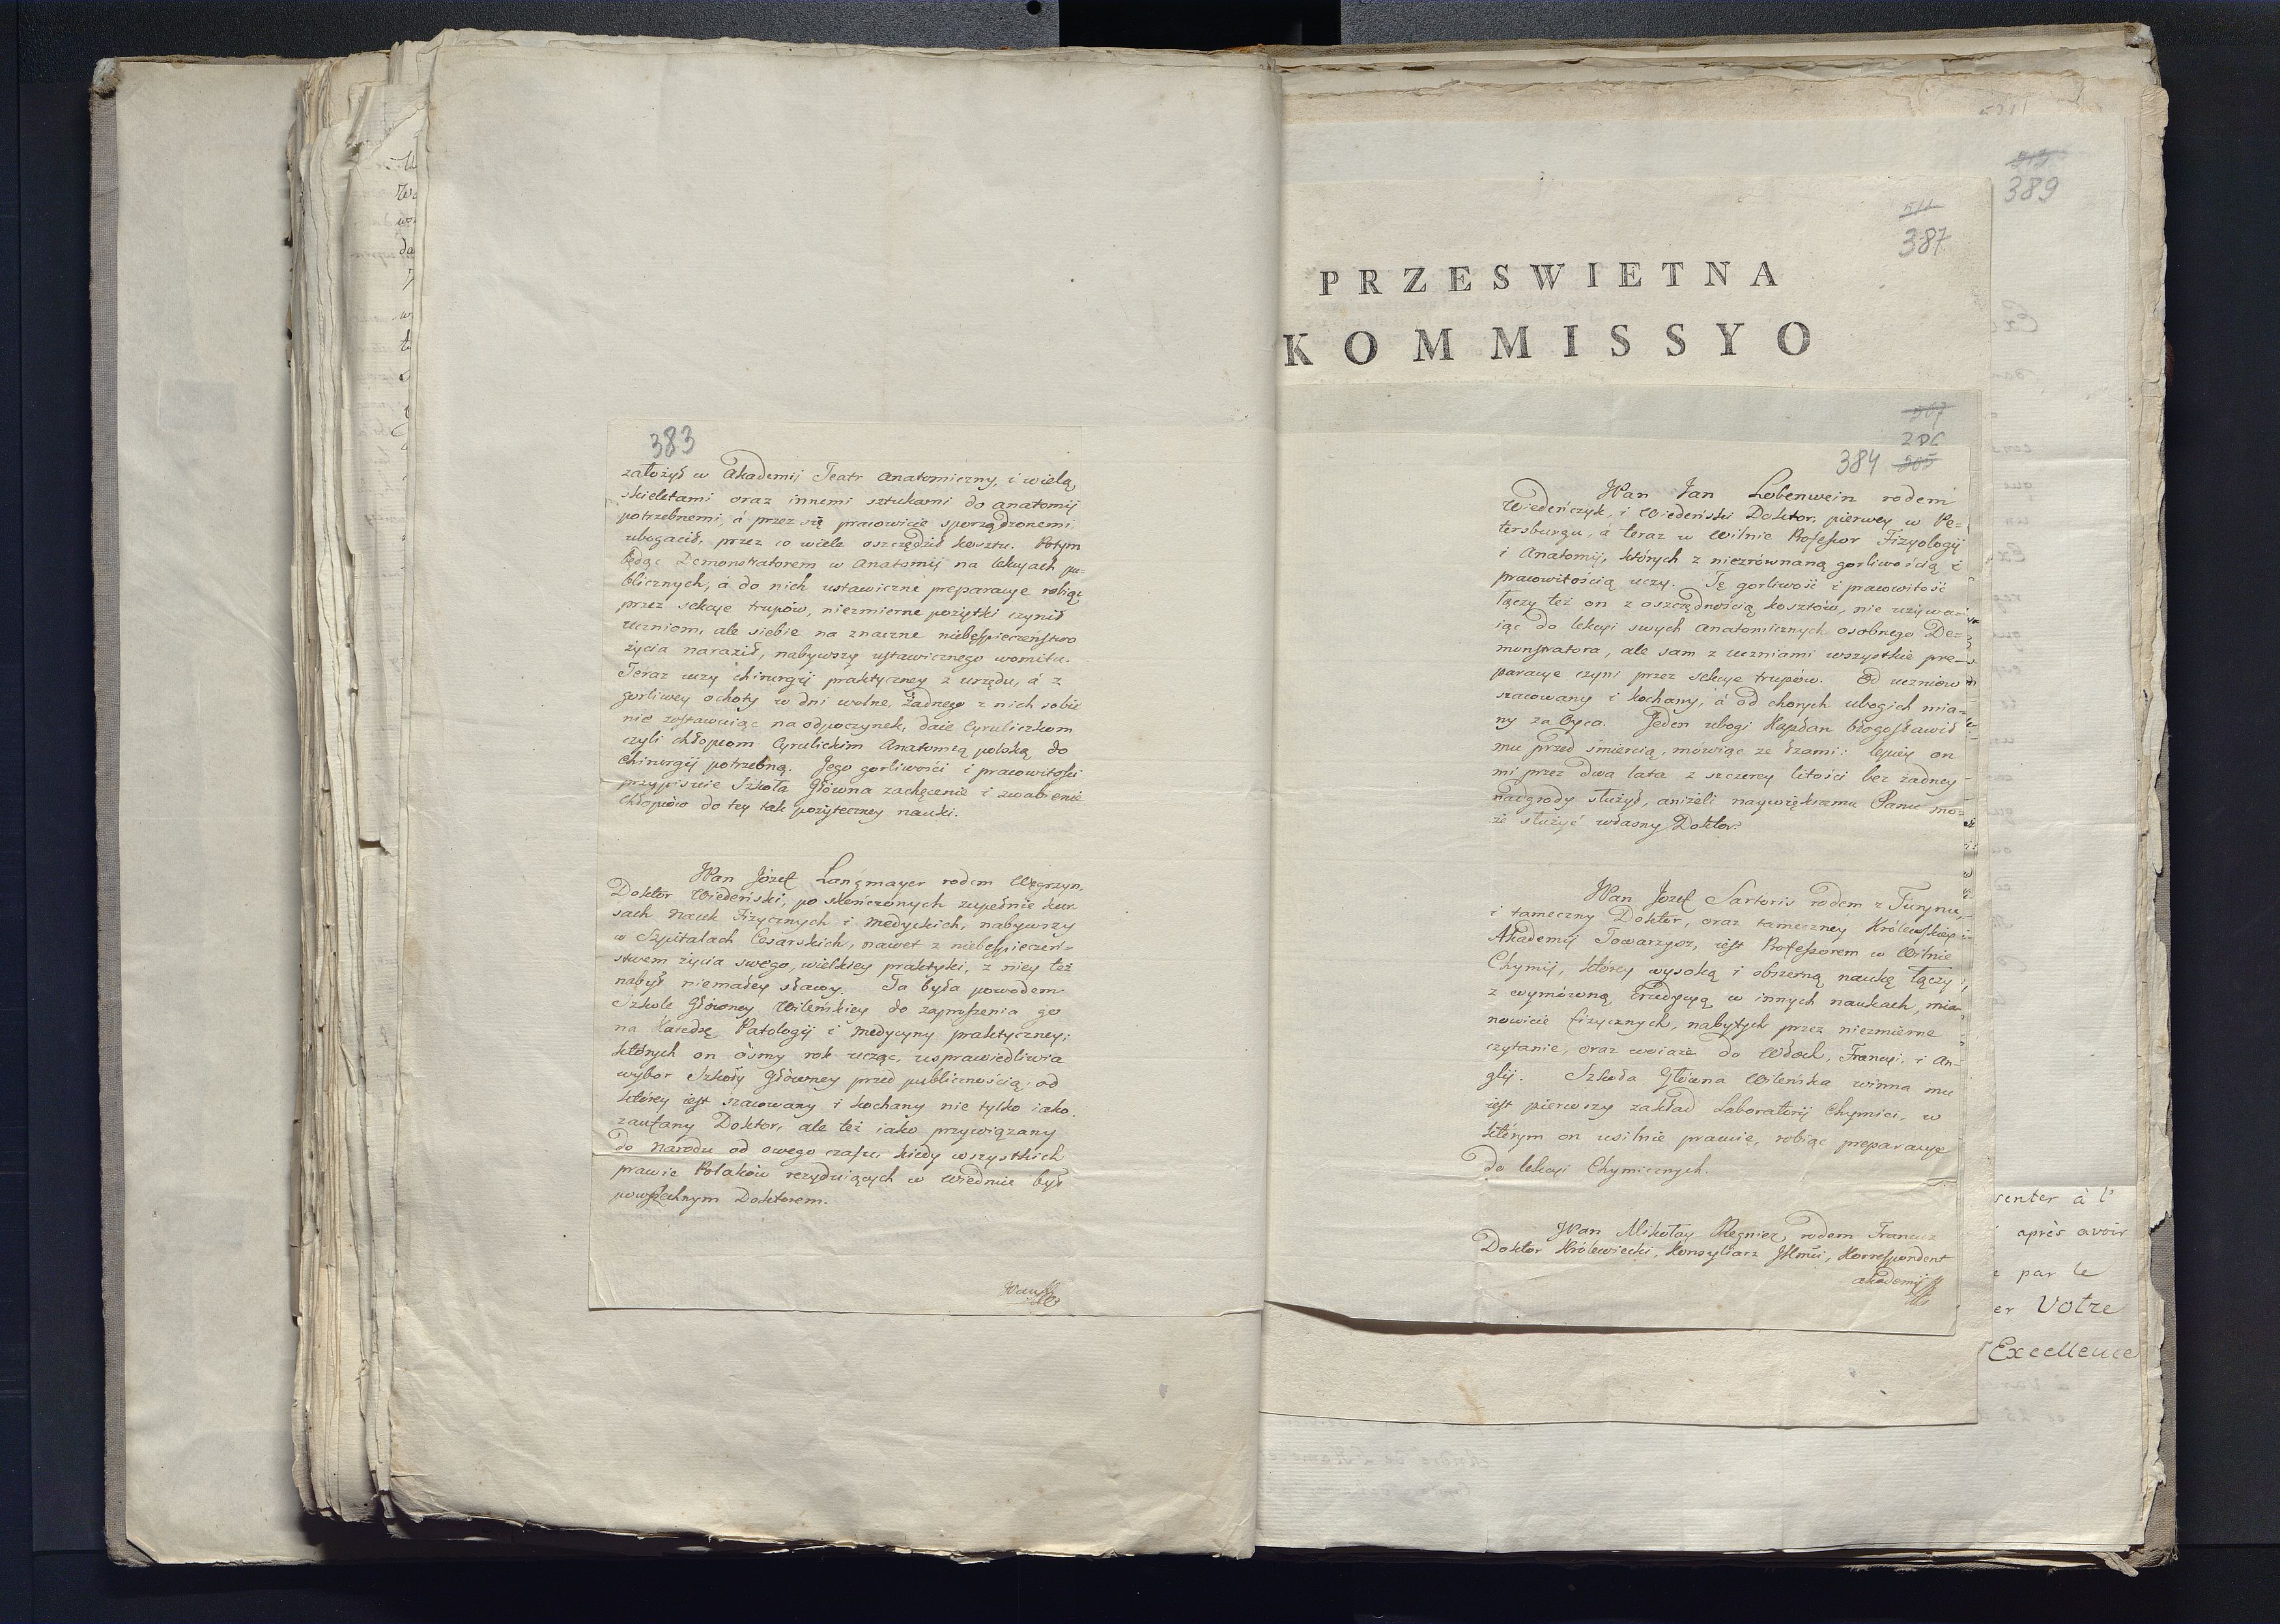 383
założył w Akademij Teatr Anatomiczny, i wielą
skieletami oraz innemi sztukami do anatomij
potrzebnemi, á przez się pracowicie sporządzonemi
ubogacił, przez co wiele oszczędził kosztu. Potym
będąc Demonstratorem w Anatomij na lekcyach pu-
blicznych, á do nich ustawiczne preparacye robiąc
przez sekcye trupów, niezmierne pożytki czynił
uczniom, ale siebie na znaczne niebespieczeństwo
życia naraził, nabywszy ustawicznego womitu.
Teraz uczy chirurgij praktyczney z urzędu, á z
gorliwey ochoty w dni wolne, żadnego z nich sobie
nie zostawuiąc na odpoczynek, daie Cyruliczkom
czyli chłopcom Cyrulickim Anatomią polską do
Chirurgij potrzebną. Jego gorliwości i pracowitości
przypisuie Szkoła Główna zachęcenie i zwabienie
chłopców do tey tak pożyteczney nauki.
JPan Józef Langmayer rodem Węgrzyn,
Doktor Wiedeński, po skończonych zupełnie kur
sach Nauk Fizycznych i Medyckich, nabywszy
w Szpitalach Cesarskich, nawet z niebespieczeń-
stwem życia swego, wielkiey praktyki, z niey też
nabył niemałey sławy. Ta była powodem
Szkole Główney Wileńskiey do zaproszenia go
na Katedrę Patologij i Medycyny praktyczney;
których on ósmy rok ucząc, usprawiedliwia
wybor Szkoły Główney przed publicznością; od
którey iest szacowany i kochany nie tylko iako
zaufany Doktor, ale też iako przywiązany
do Narodu od owego czasu, kiedy wszystkich
prawie Polaków rezyduiących w Wiedniu był
powszechnym Doktorem.
JPan
389
387
PRZESWIETNA
KOMMISSYO
384
JPan Jan Lobenwein rodem
Wiedeńczyk, i Wiedeński Doktor, pierwey w Pe-
tersburgu, á teraz w Wilnie Professor Fizyologij
i Anatomij, których z niezrównaną gorliwością i
pracowitością uczy. Tę gorliwość i pracowitość
łączy też on z oszczędnością kosztów, nie używa-
iąc do lekcyi swych Anatomicznych osobnego De-
monstratora, ale sam z uczniami wszystkie pre-
paracye czyni przez sekcye trupów. Od uczniów
szacowany i kochany, á od chorych ubogich mia-
ny za Oyca. Jeden ubogi Kapłan błogosławił
mu przed śmiercią, mówiąc ze łzami: lepiey on
mi przez dwa lata z szczerey litości bez żadney
nadgrody służył, aniżeli naywiększemu Panu mo-
że służyć własny Doktor.
JPan Jozef Sartoris rodem z Turynu,
i tameczny Doktor, oraz tameczney Królewskiey
Akademij Towarzysz, iest Professorem w Wilnie
Chymij, którey wysoką i obszerną naukę łączy
z wymówną Erudycyą w innych naukach, mia
nowicie fizycznych, nabytych przez niezmierne
czytanie, oraz woiaże do Włoch, Francyi, i An-
glij. Szkoła Główna Wileńska winna mu
iest pierwszy zakład Laboratorij Chymici, w
którym on usilnie pracuie, robiąc preparacye
do lekcyi Chymicznych.
JPan Mikołay Regnier, rodem Francuz
Doktor Królewiecki, Konsyliarz JKMci, Korrespondent
akademij
senter à l'
après avoir
par le
er Votre
Excellence